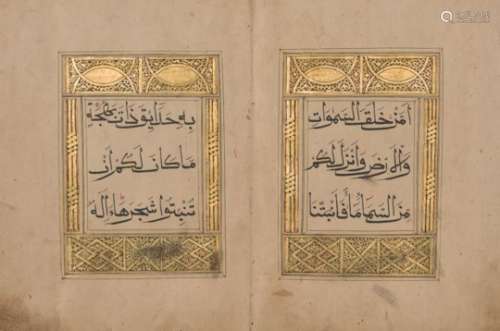 أمن خلق السموات
والأرض وأنزل لكم
من السماء ماء فأنبتنا
به حدائق ذات بهجة
ما كان لكم أن
تنبتوا شجرها أءله